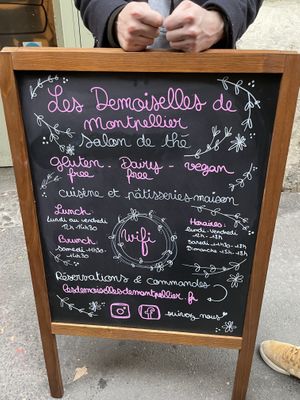 Les Demoiselles de
montpellier
salon de thé
gluten - Dairy - vegan
free free
cuisine et pâtisseries maison
Lunch:
lundi au vendredi
12h-14h30
Brunch:
Samedi
14h30
wifi
Horaires:
Lundi - Vendredi
12h - 18h
Samedi - 11h30 - 18h
Dimanche
Réservations & commandes
lesdemoisellesdemontpellier.fr
suivez nous